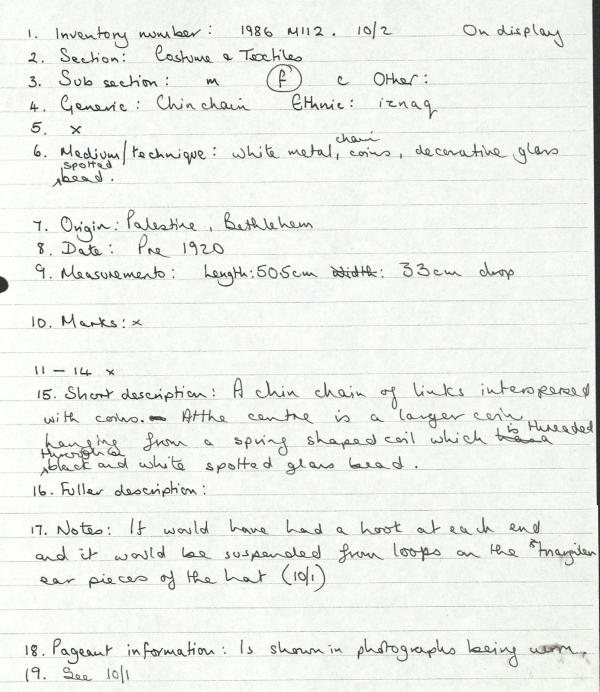 1. Inventory number: 1986 M112. 10/2 On display
2. Section: Costume & Textiles
3. Sub section: m f c Other:
4. Generic: Chin chain Ethnic: iznaq
5. x
6. Medium/technique: white metal, chain coins, decorative glass
spotted bead.
7. Origin: Palestine, Bethlehem
8. Date: Pre 1920
9. Measurements: Length: 50.5cm Width: 33cm drop
10. Marks: x
11 - 14 x
15. Short description: A chin chain of links interspersed
with coins. At the centre is a larger coin
hanging from a spring shaped coil which is threaded
through a black and white spotted glass bead.
16. Fuller description:
17. Notes: It would have had a hook at each end
and it would be suspended from loops on the
ear pieces of the hat (10/1)
18. Pageant information: Is shown in photographs being worn.
19. See 10/1